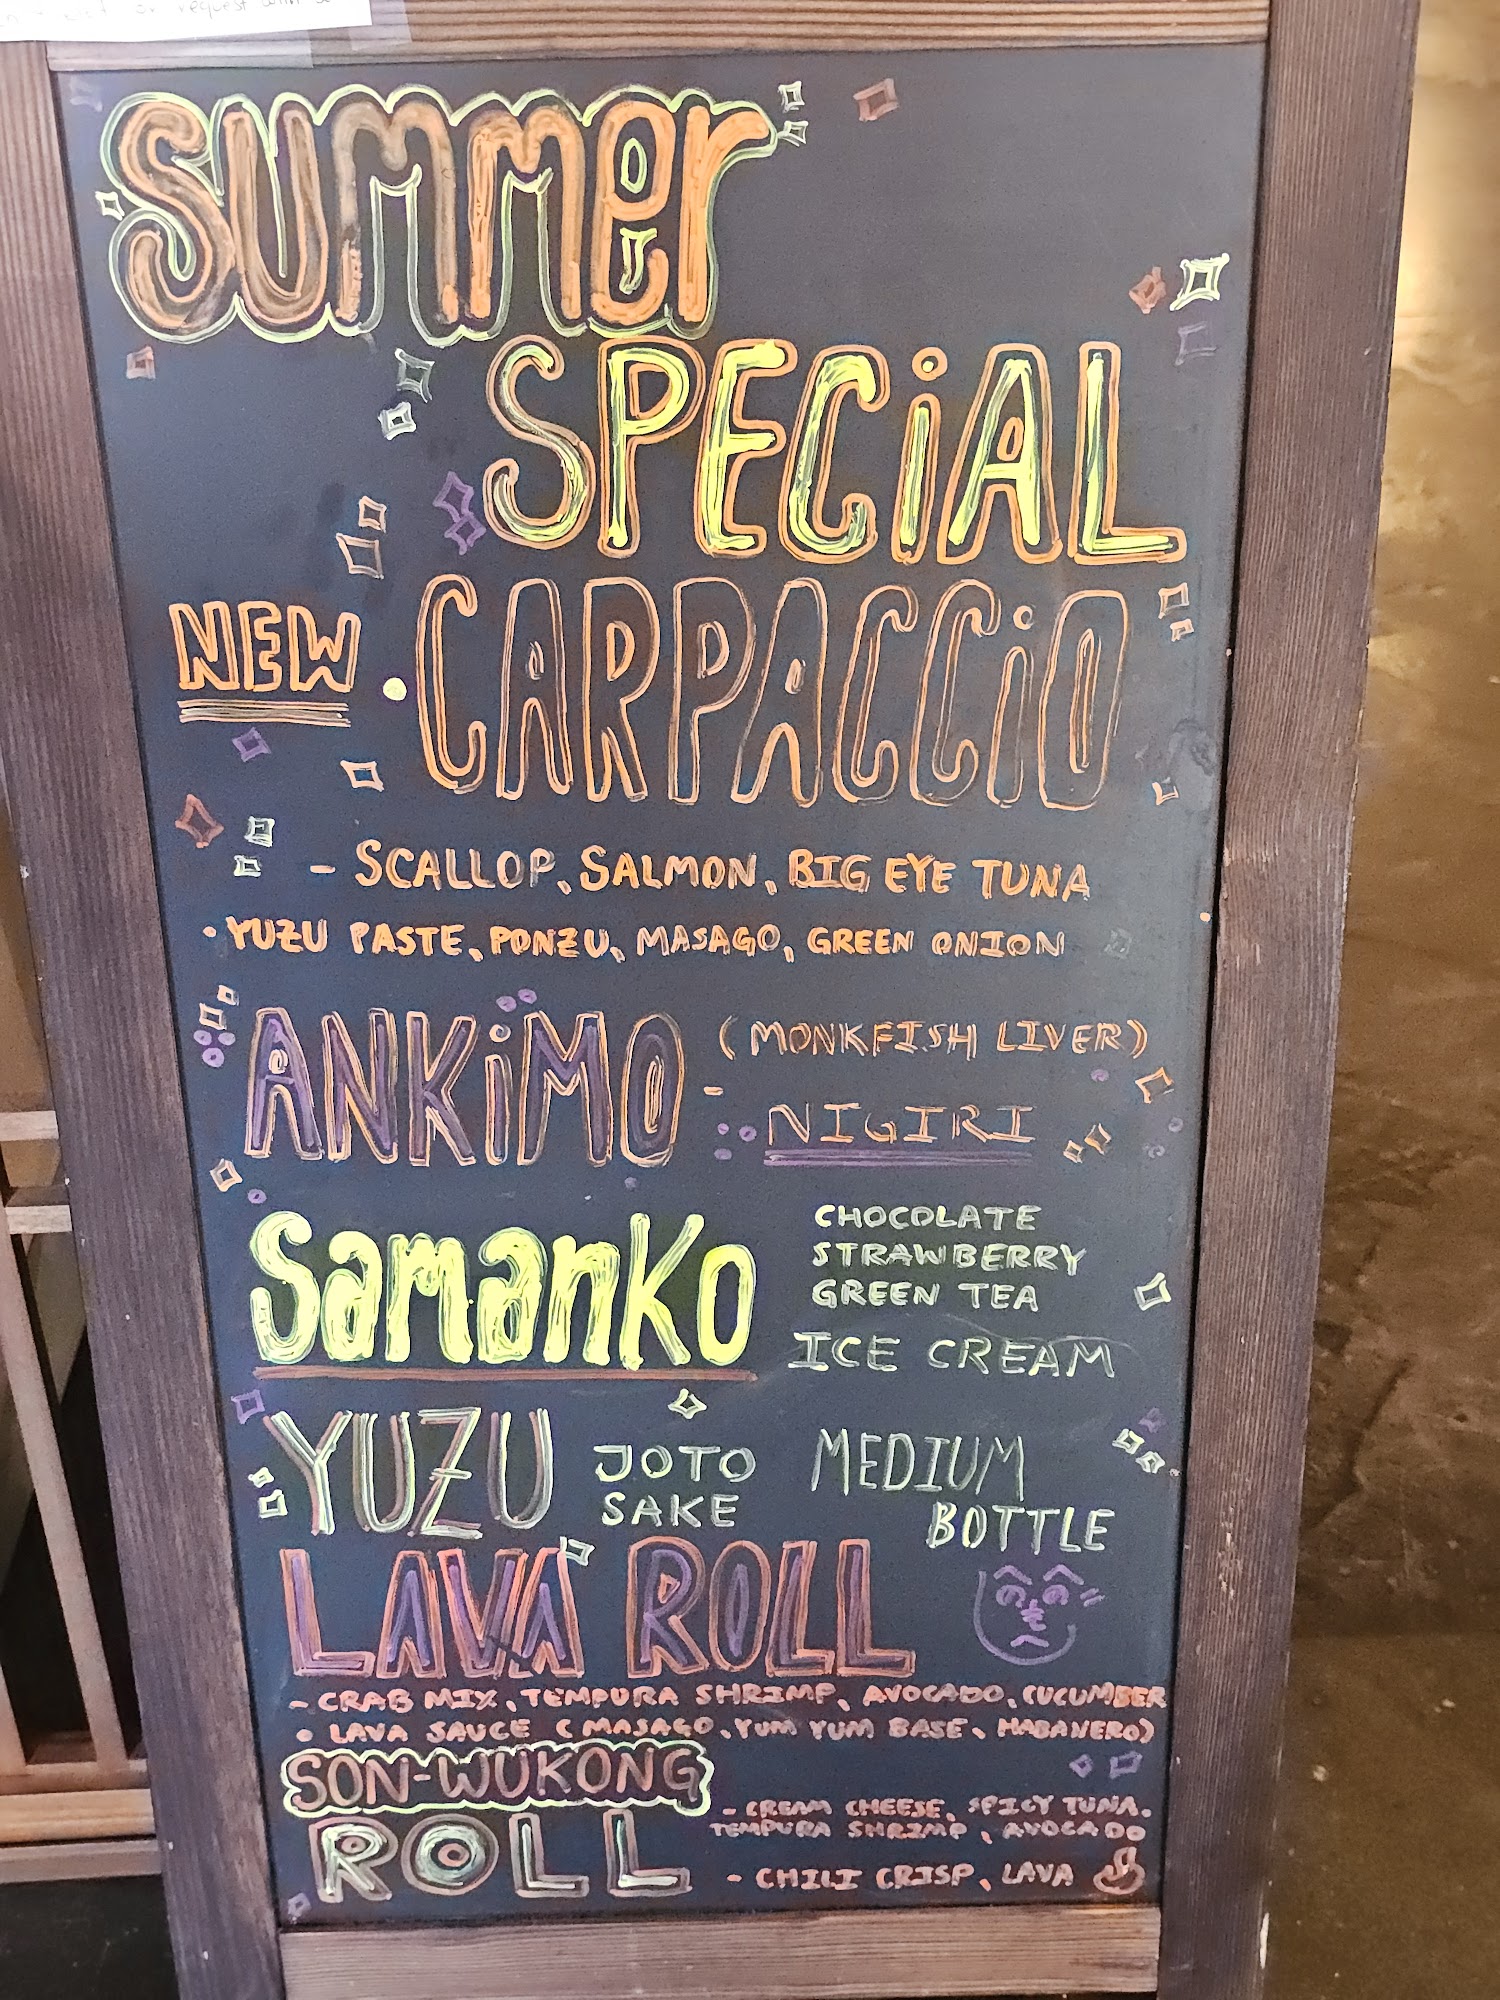 Summer
SPECiAL
NEW
• CARPACCiO
- SCALLOP, SALMON, BIG EYE TUNA
• YUZU PASTE, PONZU, MASAGO, GREEN ONION
ANKiMO - (MONKFISH LIVER)
NIGIRI
Samanko
CHOCOLATE
STRAWBERRY
GREEN TEA
ICE CREAM
YUZU
JOTO
SAKE
MEDIUM
BOTTLE
LAVA ROLL
- CRAB MIX, TEMPURA SHRIMP, AVOCADO, CUCUMBER
• LAVA SAUCE (MASAGO, YUM YUM BASE, HABANERO)
SON-WUKONG
ROLL
- CREAM CHEESE, SPICY TUNA,
TEMPURA SHRIMP, AVOCADO
- CHILI CRISP, LAVA